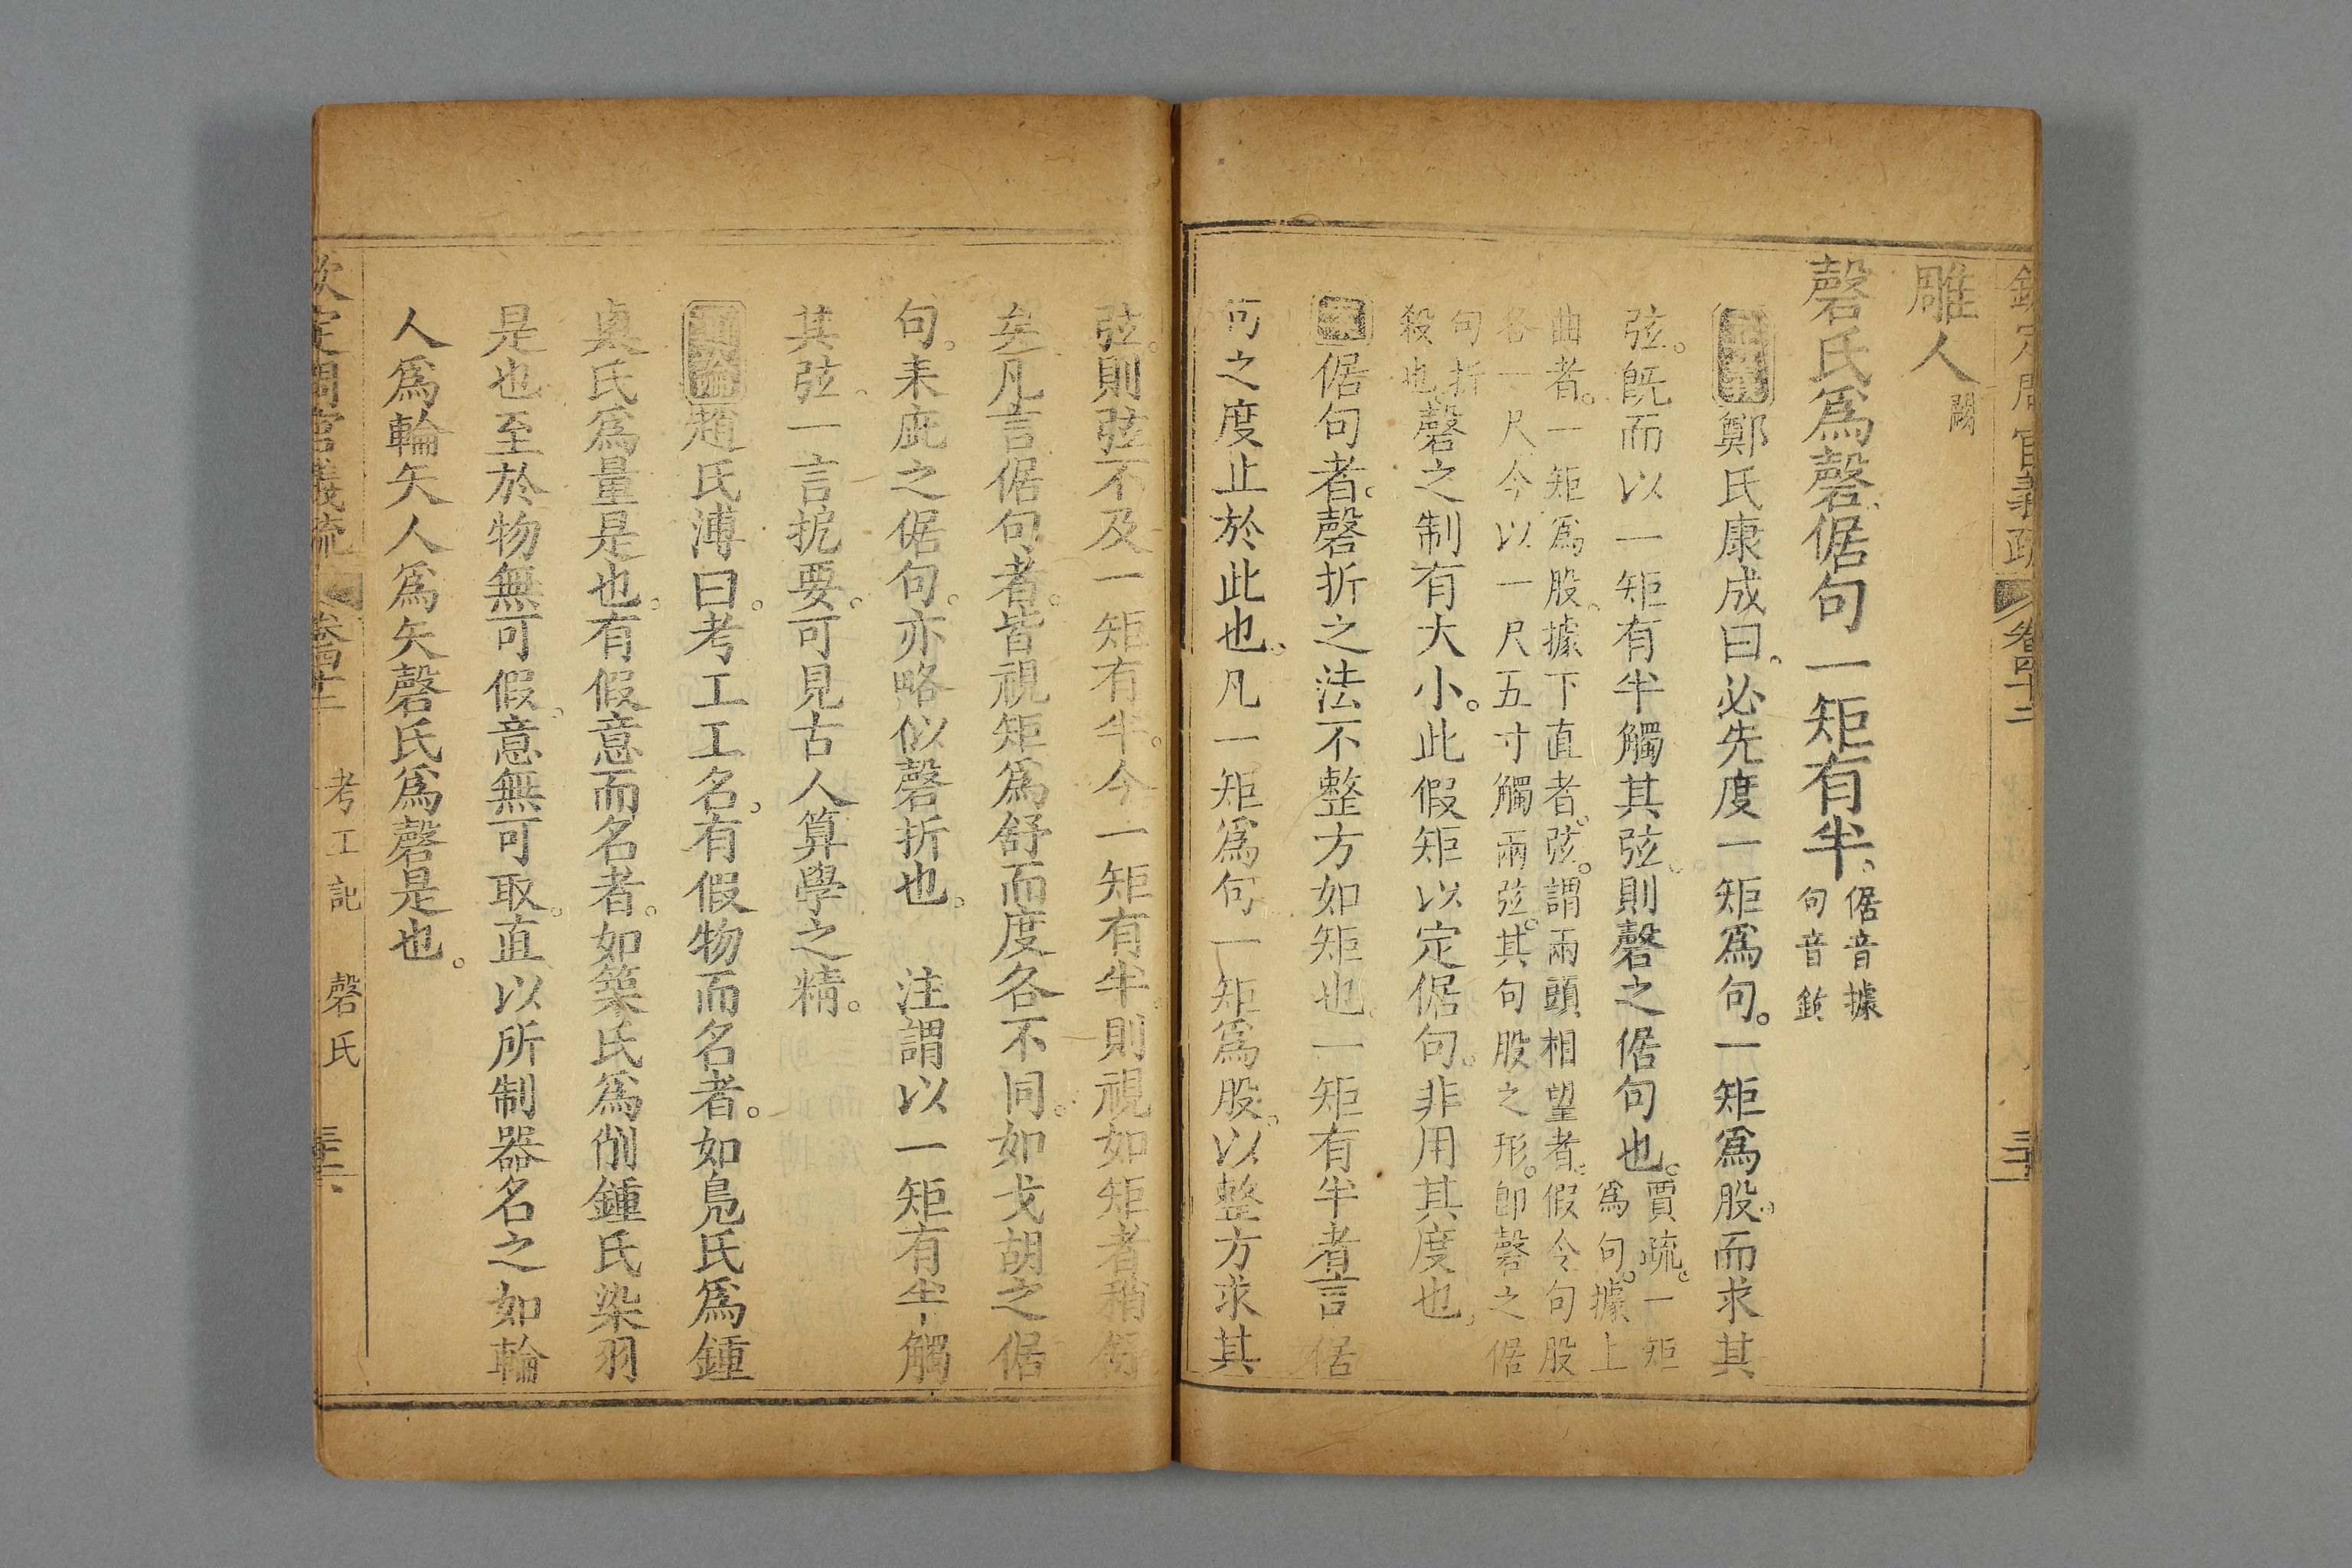 欽定周官義疏 卷四十二
雕人闕
磬氏爲磬倨句一矩有半倨音據句音鉤
鄭氏康成曰必先度一矩爲句。一矩爲股。而求其
弦。旣而以一矩有半觸其弦。則磬之倨句也。賈疏。一矩爲句。據上
曲者。一矩爲股。據下直者。弦。謂兩頭相望者。假令句股
各一尺今以一尺五寸觸兩弦。其句股之形。卽磬之倨
句折殺也磬之制有大小。此假矩以定倨句。非用其度也。
倨句者。磬折之法不整方如矩也。一矩有半者言倨
句之度止於此也。凡一矩爲句一矩爲股。以整方求其
弦。則弦不及一矩有半。今一矩有半。則視如矩者稍舒
矣凡言倨句者。皆視矩爲舒而度各不同。如戈胡之倨
句。耒庇之倨句。亦略似磬折也。 注謂以一矩有半觸
其弦。一言扼要。可見古人算學之精。
趙氏溥曰。考工工名。有假物而名者。如鳧氏爲鍾
㮚氏爲量是也。有假意而名者。如築氏爲削鍾氏染羽
是也。至於物無可假。意無可取。直以所制器名之如輪
人爲輪矢人爲矢磬氏爲磬是也。
欽定周官義疏 卷四十二 考工記 磬氏